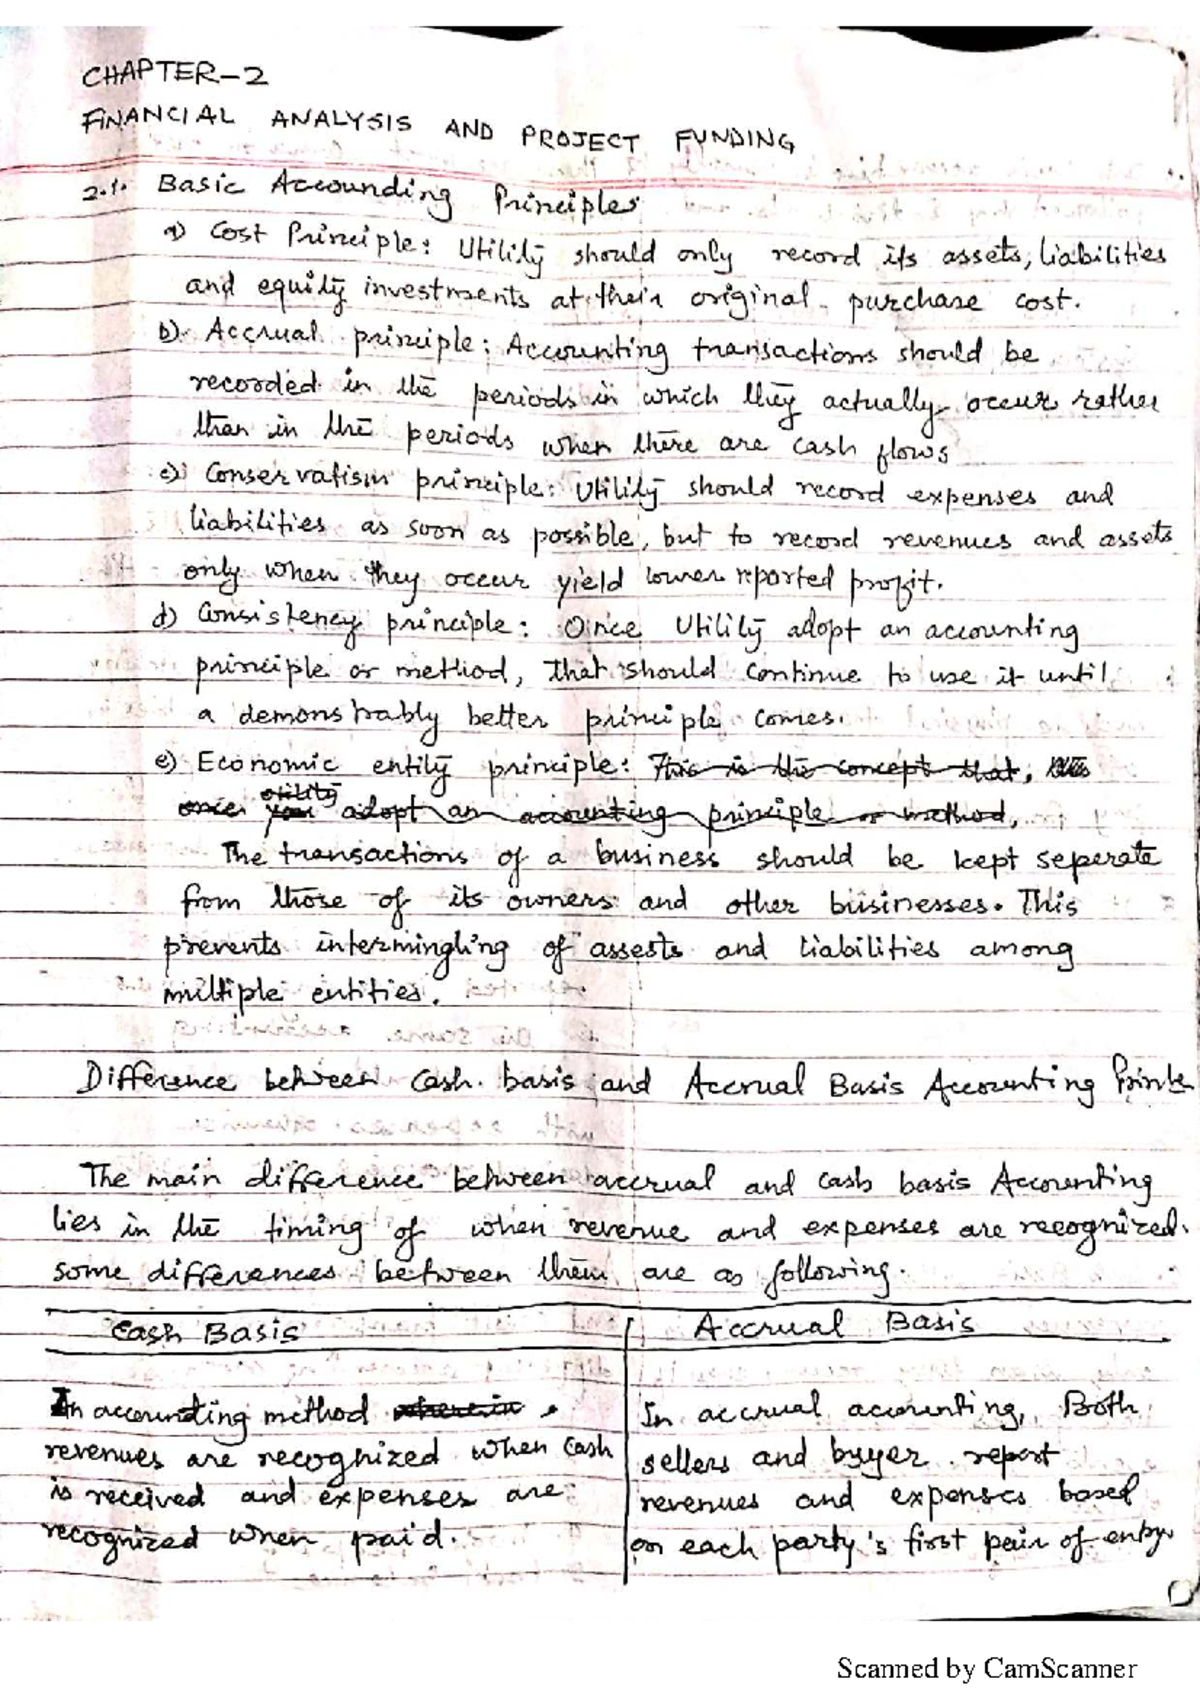 CHAPTER-2
FINANCIAL ANALYSIS AND PROJECT FUNDING
2.1. Basic Accounding Principles
a) Cost Principle: Utility should only record its assets, liabilities
and equity investments at their original purchase cost.
b) Accrual principle: Accounting transactions should be
recorded in the periods in which they actually occur rather
than in the periods when there are cash flows
c) Conservatism principle: Utility should record expenses and
liabilities as soon as possible, but to record revenues and assets
only when they occur yield lower reported profit.
d) Consistency principle: Once Utility adopt an accounting
principle or method, that should continue to use it until
a demonstrably better principle comes.
e) Economic entity principle: This is the concept that,
utility
once you adopt an accounting principle or method,
The transactions of a business should be kept seperate
from those of its owners and other businesses. This
prevents intermingling of assests and liabilities among
multiple entities.
Difference between Cash basis and Accrual Basis Accounting
The main difference between accrual and cash basis Accounting
lies in the timing of when revenue and expenses are recognized.
some differences between them are as following.
Cash Basis Accrual Basis
In accounting method wherein
revenues are recognized when cash
is received and expenses are
recognized when paid.
In accrual accounting, Both
sellers and buyer report
revenues and expenses based
on each party's first pair of entry.
Scanned by CamScanner